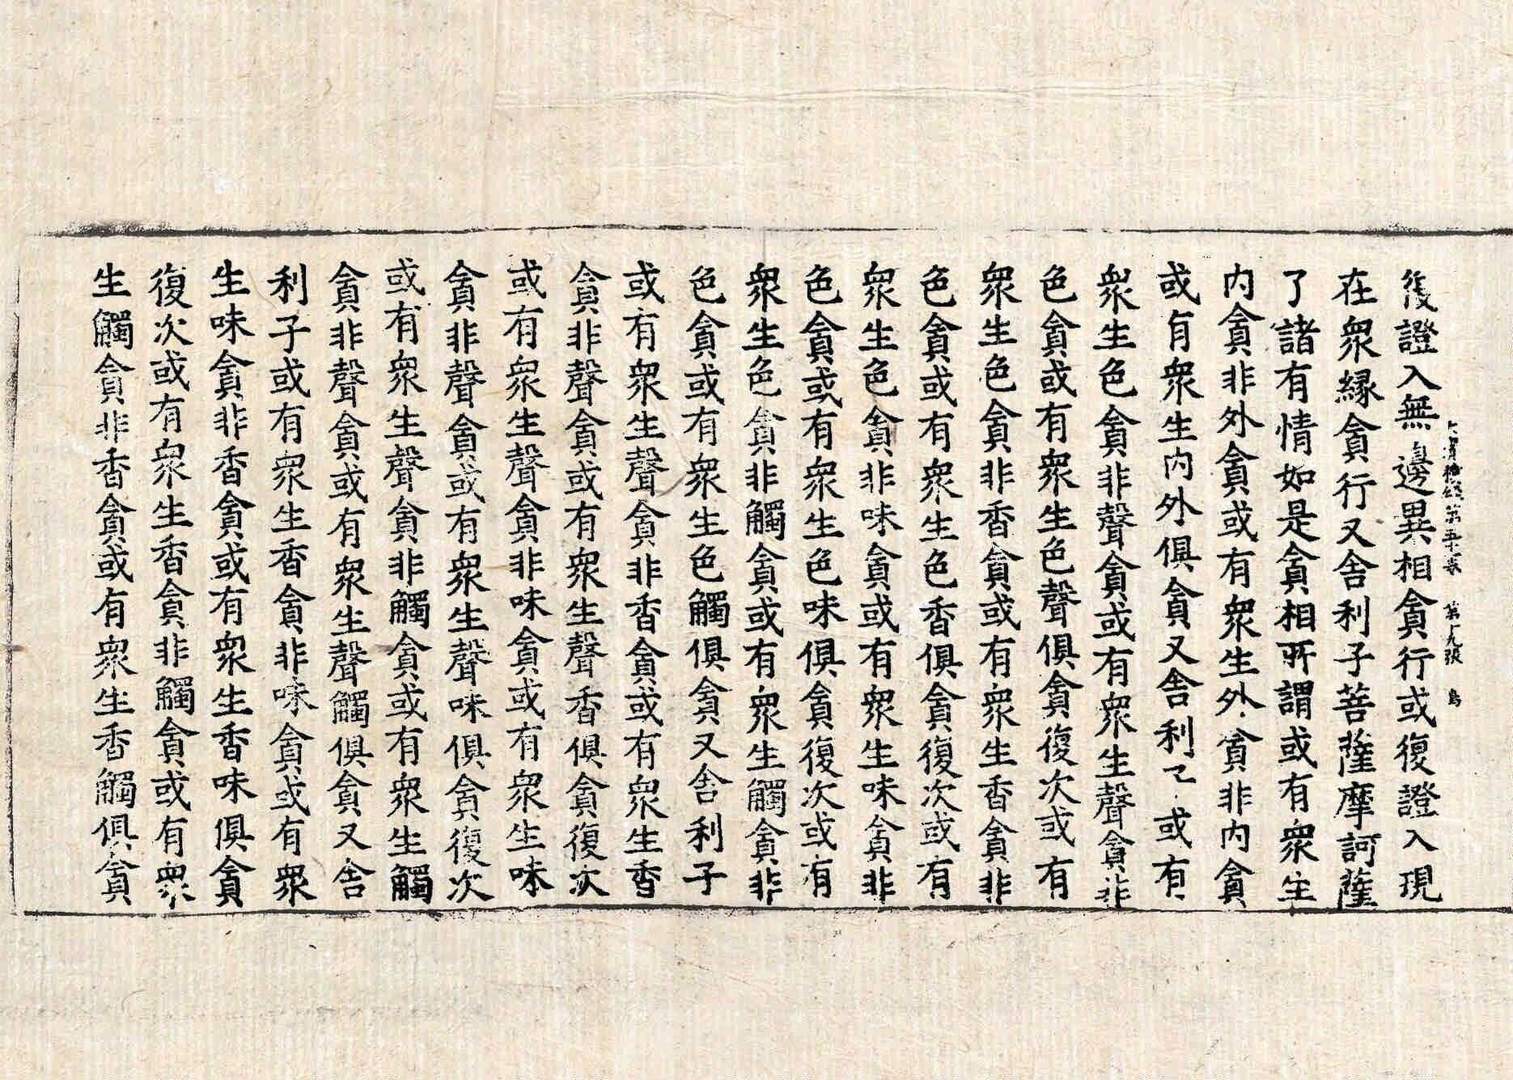 大寶積經第五十一卷 第十九張 鳥
復證入無邊異相貪行或復證入現
在衆縁貪行又舍利子菩薩摩訶薩
了諸有情如是貪相所謂或有衆生
内貪非外貪或有衆生外貪非内貪
或有衆生内外俱貪又舍利子或有
衆生色貪非聲貪或有衆生聲貪非
色貪或有衆生色聲俱貪復次或有
衆生色貪非香貪或有衆生香貪非
色貪或有衆生色香俱貪復次或有
衆生色貪非味貪或有衆生味貪非
色貪或有衆生色味俱貪復次或有
衆生色貪非觸貪或有衆生觸貪非
色貪或有衆生色觸俱貪又舍利子
或有衆生聲貪非香貪或有衆生香
貪非聲貪或有衆生聲香俱貪復次
或有衆生聲貪非味貪或有衆生味
貪非聲貪或有衆生聲味俱貪復次
或有衆生聲貪非觸貪或有衆生觸
貪非聲貪或有衆生聲觸俱貪又舍
利子或有衆生香貪非味貪或有衆
生味貪非香貪或有衆生香味俱貪
復次或有衆生香貪非觸貪或有衆
生觸貪非香貪或有衆生香觸俱貪